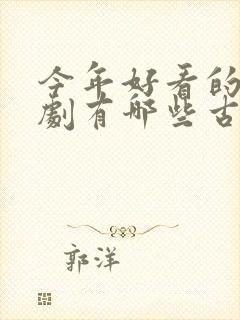 今年好看的
劇有哪些古
郭洋